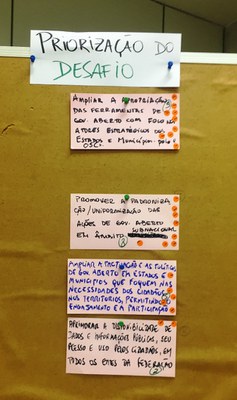 PRIORIZAÇÃO DO
DESAFIO
AMPLIAR A APROPRIAÇÃO
DAS FERRAMENTAS DE
GOV. ABERTO COM FOCO NOS
ATORES ESTRATÉGICOS DOS
ESTADOS E MUNICÍPIOS. pelas
OSC
PROMOVER A PADRONIZA
ÇÃO/UNIFORMIZAÇÃO DAS
AÇÕES DE GOV. ABERTO
EM ÂMBITO SUBNACIONAL
2
AMPLIAR A PACTUAÇÃO E AS POLÍTICAS
DE GOV. ABERTO EM ESTADOS E
MUNICÍPIOS QUE FOQUEM NAS
NECESSIDADES DOS CIDADÃOS
NOS TERRITÓRIOS, PERMITINDO
ENGAJAMENTO E A PARTICIPAÇÃO
APRIMORAR A DISPONIBILIDADE DE
DADOS E INFORMAÇÕES PÚBLICAS, SEU
ACESSO E USO PELOS CIDADÃOS, EM
TODOS OS ENTES DA FEDERAÇÃO
2